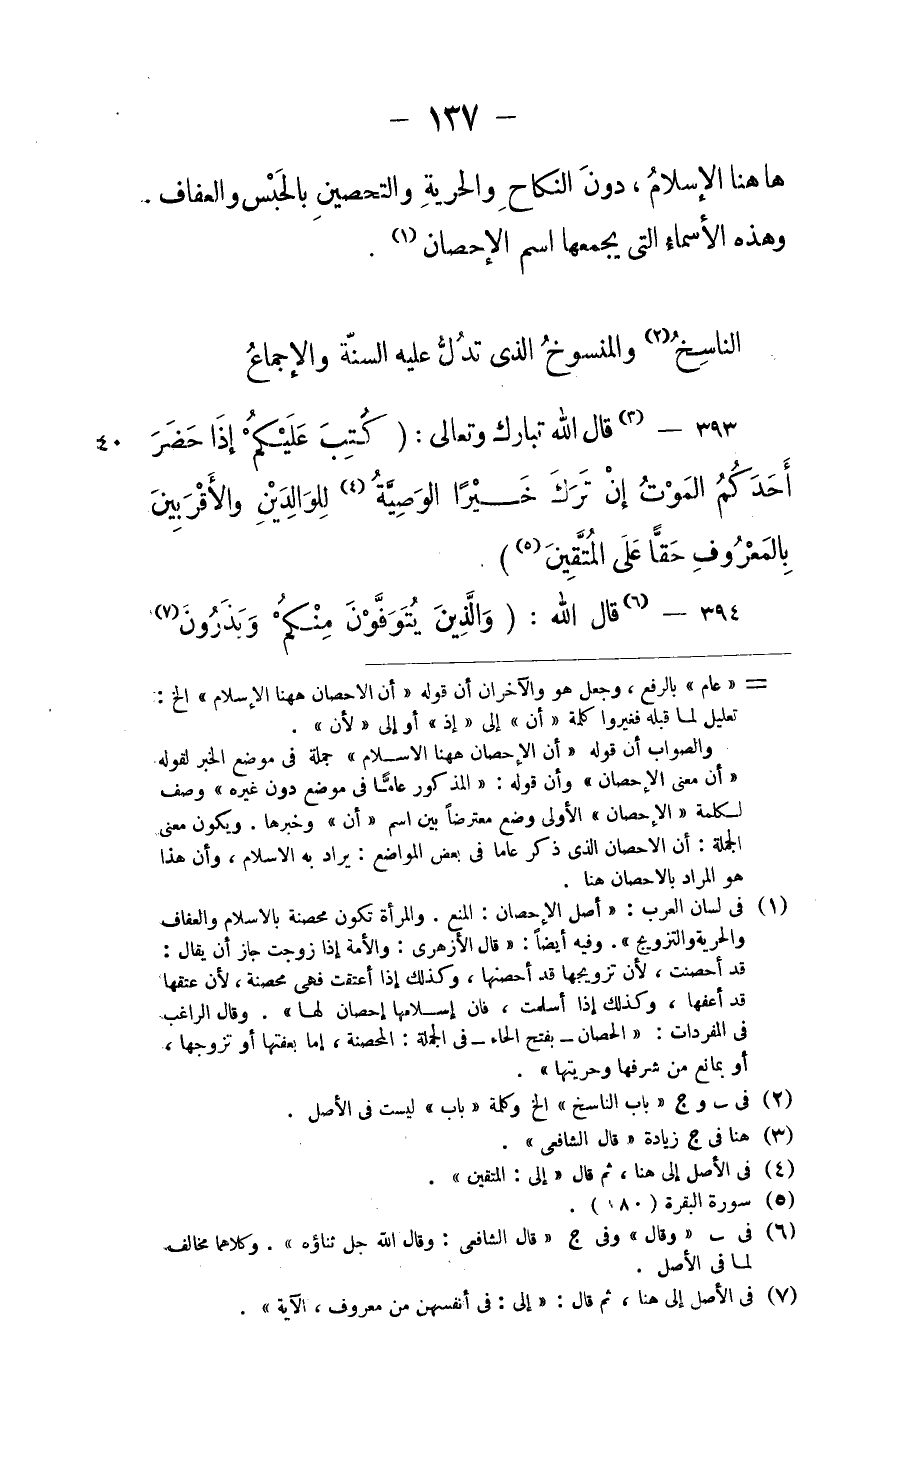 — ١٣٧ —
ها هنا الإسلامُ ، دونَ النكاحِ والحريةِ والتحصينِ بالحَبْس والعفاف .
وهذه الأسماء التى يجمعها اسم الإحصان (١) .
الناسِخُ(٢) والمنسوخُ الذى تدُلُّ عليه السنّة والإجماعُ
٣٩٣ — (٣) قال الله تبارك وتعالى : ( كُتِبَ عَلَيْكُمْ إِذَا حَضَرَ ٤٠
أَحَدَكُمُ المَوْتُ إِنْ تَرَكَ خَيْرًا الوَصِيَّةُ (٤) لِلوَالِدَيْنِ والأَقْرَبِينَ
بِالمَعْرُوفِ حَقًّا عَلَى المُتَّقِينَ (٥) ) .
٣٩٤ — (٦) قال الله : ( وَالَّذِينَ يُتَوَفَّوْنَ مِنْكُمْ وَيَذَرُونَ (٧)
= « عام » بالرفع ، وجعل هو والآخران أن قوله « أن الاحصان ههنا الإسلام » الخ :
تعليل لما قبله فغيروا كلمة « أن » إلى « إذ » أو إلى « لأن » .
والصواب أن قوله « أن الإحصان ههنا الاسلام » جملة فى موضع الخبر لقوله
« أن معنى الإحصان » وأن قوله : « المذكور عامًّا فى موضع دون غيره » وصف
لكلمة « الإحصان » الأولى وضع معترضاً بين اسم « أن » وخبرها . ويكون معنى
الجملة : أن الاحصان الذى ذكر عاما فى بعض المواضع : يراد به الاسلام ، وأن هذا
هو المراد بالاحصان هنا .
(١) فى لسان العرب : « أصل الإحصان : المنع . والمرأة تكون محصنة بالاسلام والعفاف
والحرية والتزويج » . وفيه أيضاً : « قال الأزهرى : والأمة إذا زوجت جاز أن يقال :
قد أحصنت ، لأن تزويجها قد أحصنها ، وكذلك إذا أعتقت فهى محصنة ، لأن عتقها
قد أعفها ، وكذلك إذا أسلمت ، فان إسلامها إحصان لها » . وقال الراغب
فى المفردات : « الحصان – بفتح الحاء – فى الجملة : المحصنة ، إما بعفتها أو تزوجها ،
أو بمانع من شرفها وحريتها » .
(٢) فى ب و ج « باب الناسخ » الخ وكلمة « باب » ليست فى الأصل .
(٣) هنا فى ج زيادة « قال الشافعى » .
(٤) فى الأصل إلى هنا ، ثم قال « إلى : المتقين » .
(٥) سورة البقرة ( ١٨٠ ) .
(٦) فى ب « وقال » وفى ج « قال الشافعى : وقال الله جل ثناؤه » . وكلاهما مخالف
لما فى الأصل .
(٧) فى الأصل إلى هنا ، ثم قال : « إلى : فى أنفسهن من معروف ، الآية » .